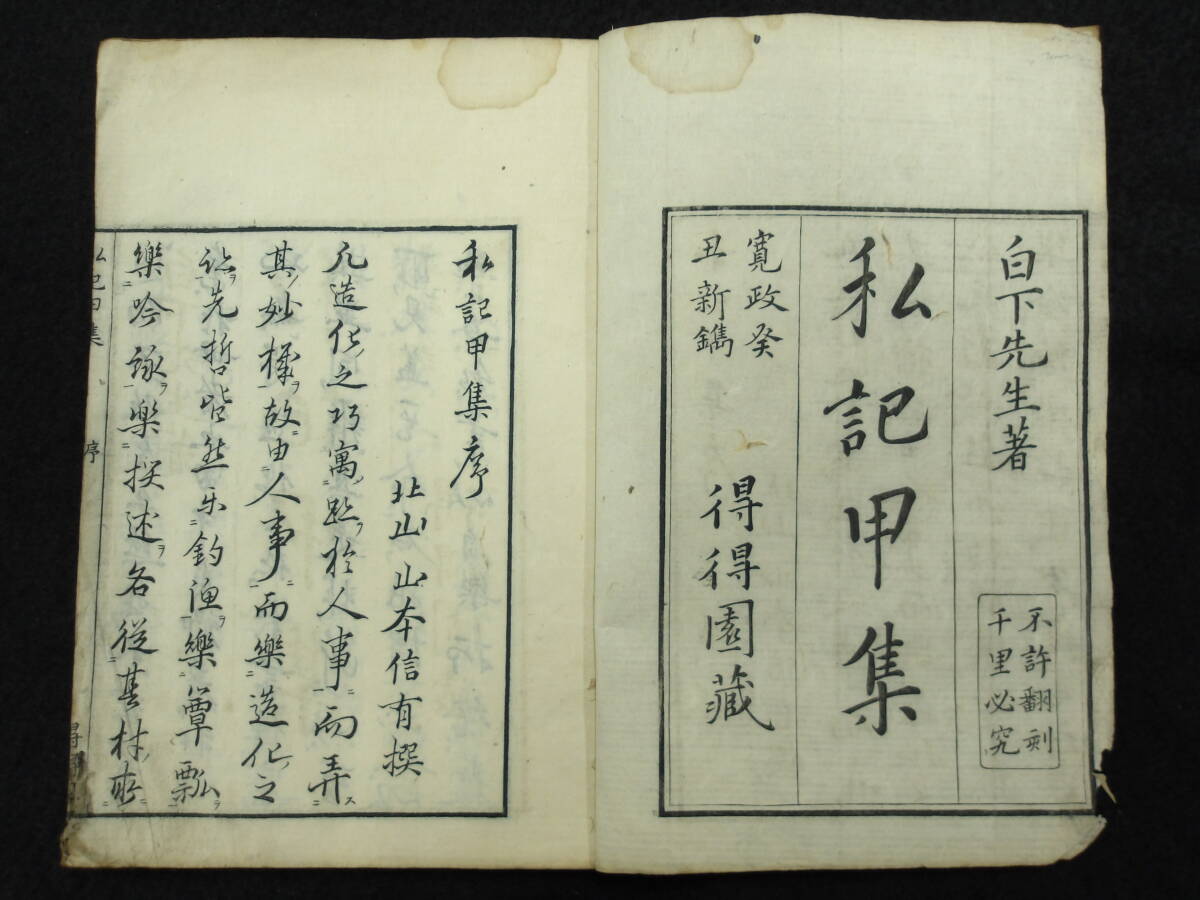 白下先生著
不許翻刻
千里必究
私記甲集
寛政癸
丑新鐫
得得園藏
私記甲集序
北山山本信有撰
凡造化之巧寓跡於人事而弄
其妙機故由人事而樂造化之
跡先哲皆然樂釣漁樂簞瓢
樂吟詠樂撰述各從其材
私記甲集 序